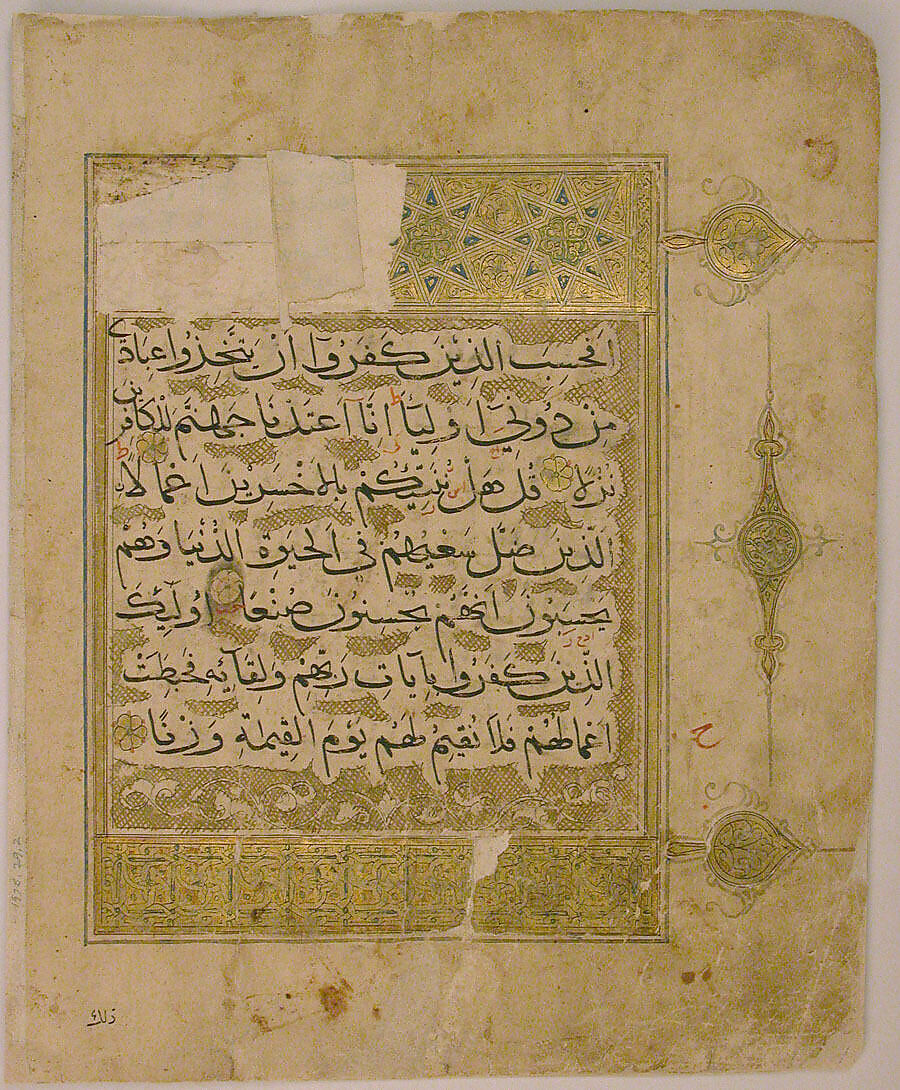 افحسب الذين كفروا ان يتخذوا عبادي
من دوني اولياء انا اعتدنا جهنم للكافرين
نزلا قل هل ننبئكم بالاخسرين اعمالا
الذين ضل سعيهم في الحيوة الدنيا وهم
يحسبون انهم يحسنون صنعا اولئك
الذين كفروا بايات ربهم ولقائه فحبطت
اعمالهم فلا نقيم لهم يوم القيمة وزنا
ذلك
1978.29.2